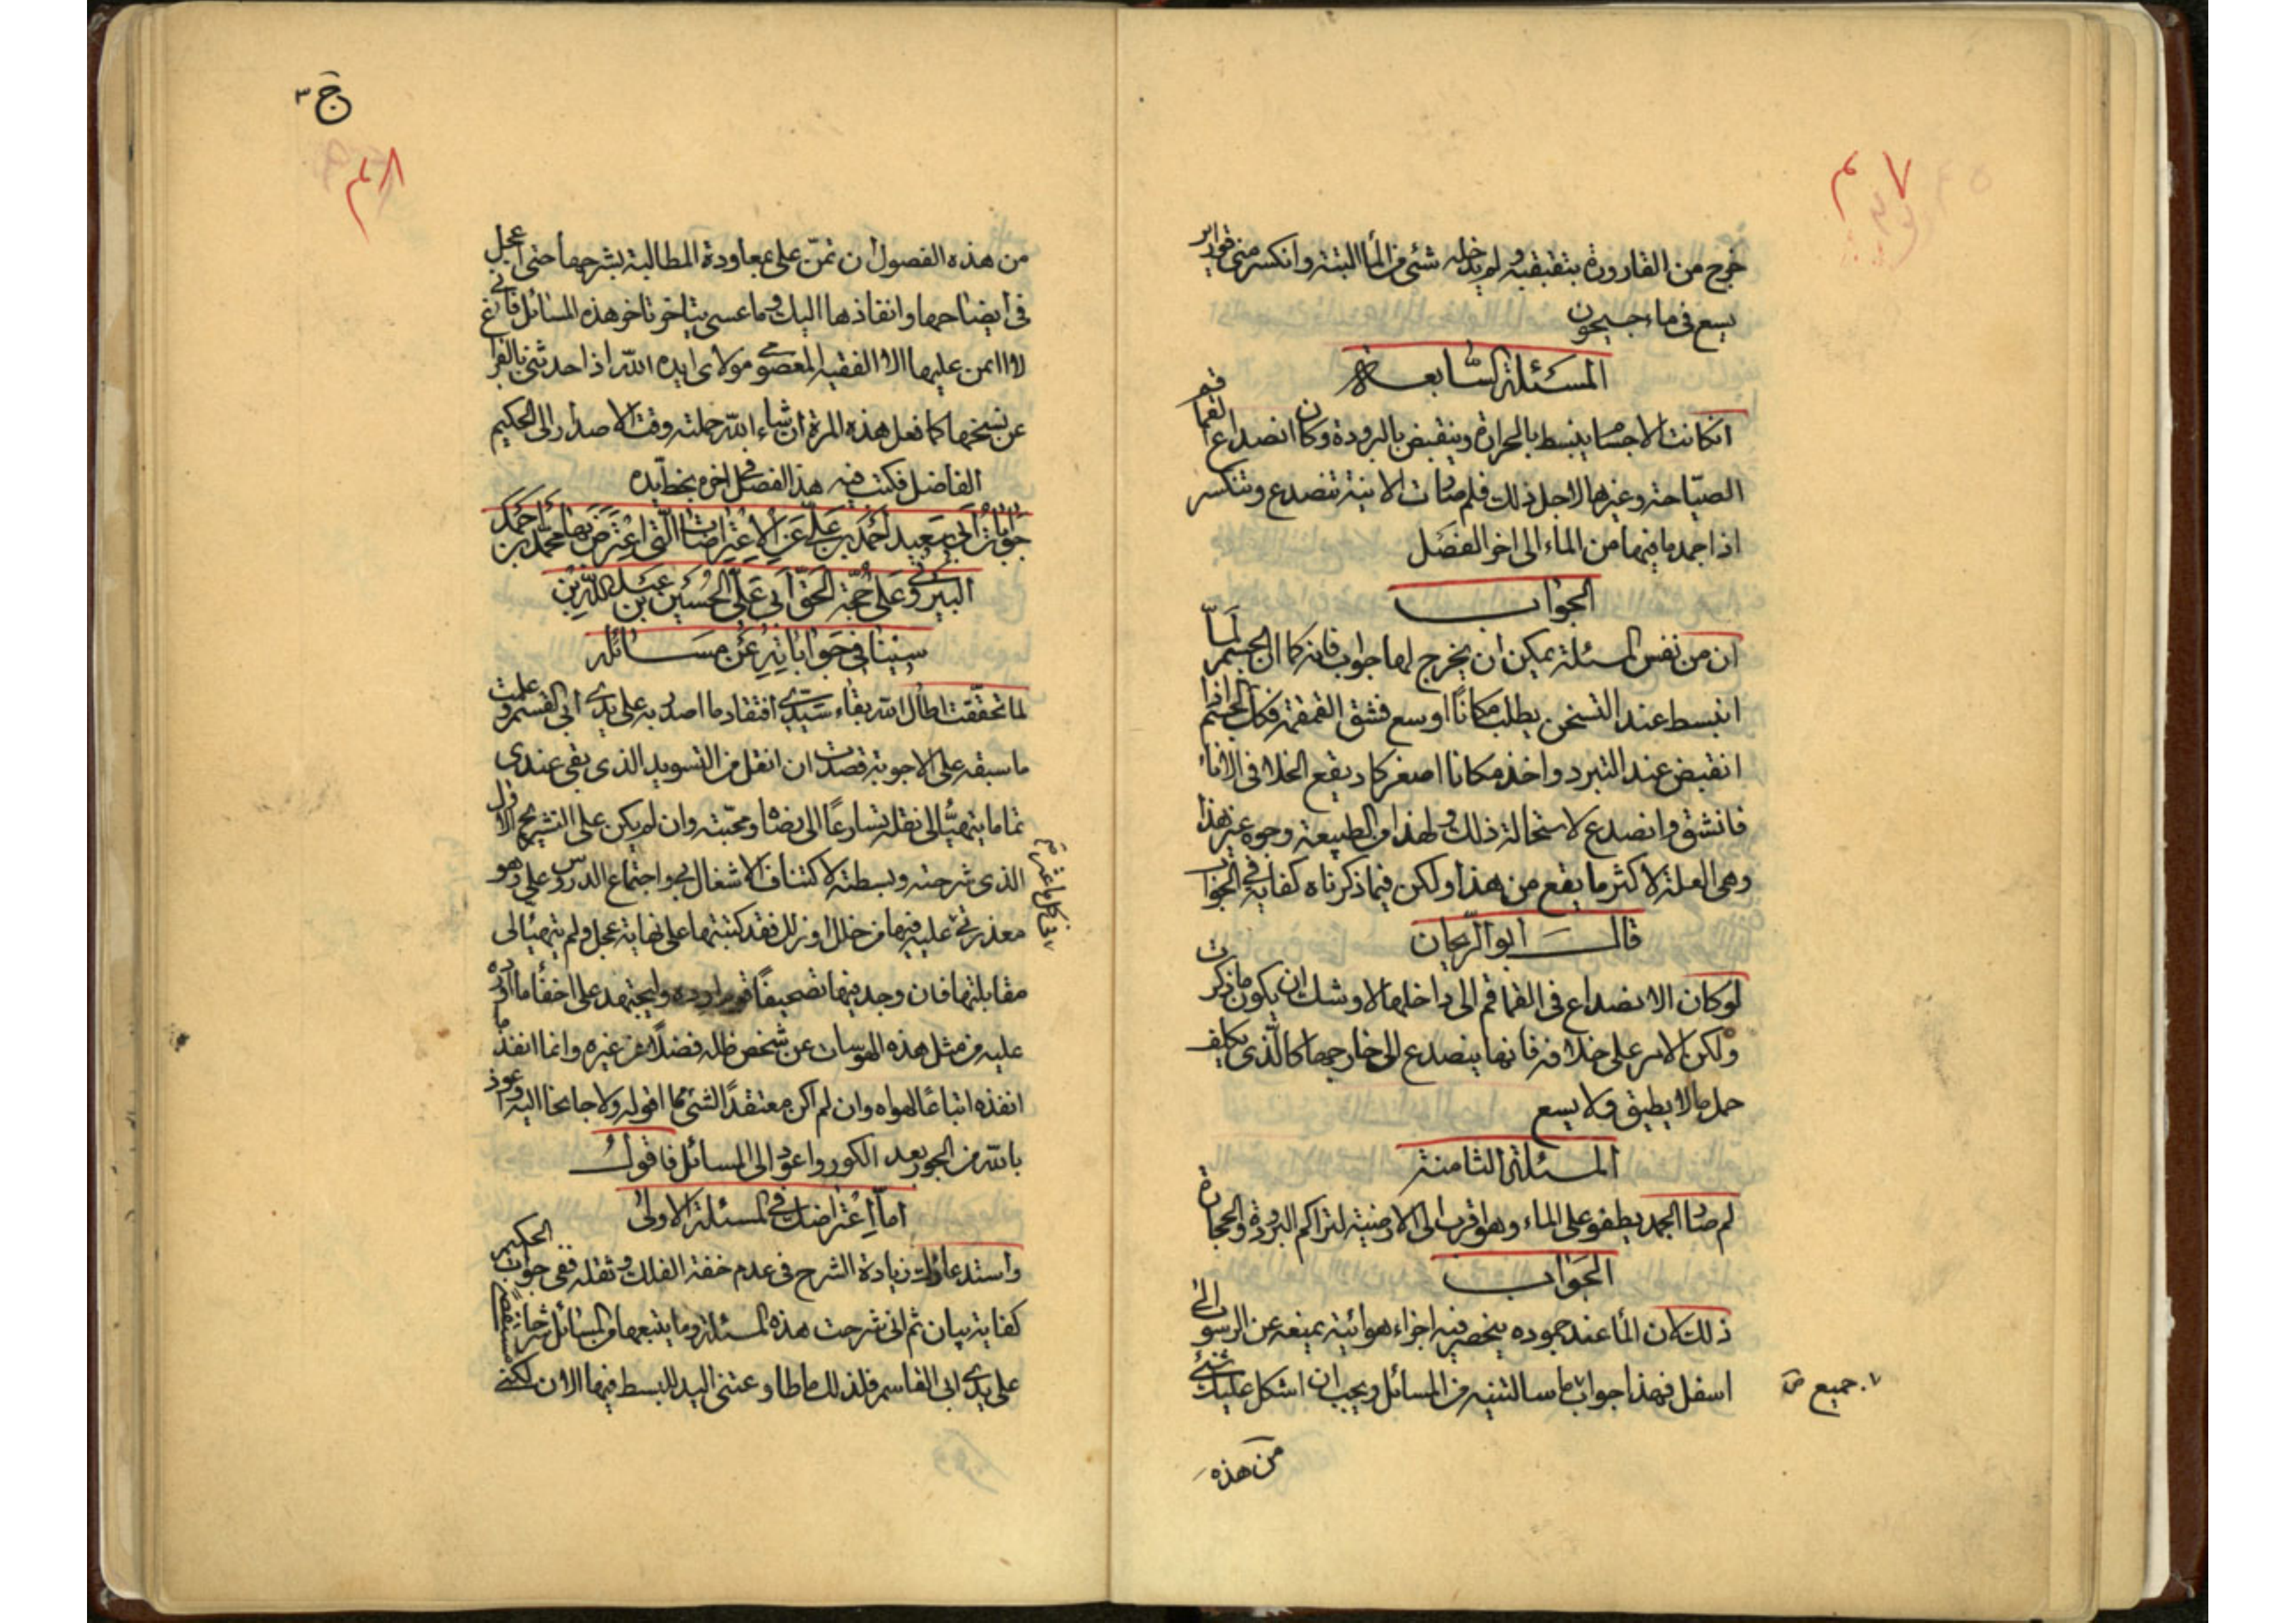 ٧ م
خرج من القارورة بتقبقبه و لم يدخله شئ من الماء البتة وانكسر منى قوارير
بسع فى ماء جيحون
المسئلة السابعة
ان كانت الاجسام ينبسط بالحرارة وينقبض بالبرودة وكان انصداع القماقم
الصياحة وغيرها لاجل ذلك فلم صارت الانية تنصدع وتنكسر
اذا جمد ما فيها من الماء الى اخر الفصل
الجواب
ان من نفس المسئلة يمكن ان يخرج لها جواب فانه كما ان الجسم لما
انبسط عند التسخن يطلب مكانًا اوسع فشق القمقمة فكك الجسم اذا
انقبض عند التبرد واخذ مكانا اصغر كاد يقع الخلا فى الاناء
فانشق وانصدع لاستحالة ذلك ولهذا من الطبيعة وجوه غير هذا
وهى العلة لاكثر ما يقع من هذا ولكن فيما ذكرناه كفاية فى الجواب
قال ابو الريحان
لو كان الانصداع فى القماقم الى داخلها لاوشك ان يكون ما ذكرت
ولكن الامر على خلافه فانها ينصدع الى خارجها كالذى يكلف
حمل ما لا يطيق ولا يسع
المسئلة الثامنة
لم صار الجمد يطفو على الماء وهو اقرب الى الارضية لتراكم البرودة والحجارة
الجواب
ذلك لان الماء عند جموده ينحصر فيه اجزاء هوائية يمنعه عن الرسوب الى
اسفل فهذا جواب ما سالتنيه من المسائل ويجب ان اشكل عليك شئ
١. جميع ص
من هذه
ج ٣
٨ م
من هذه الفصول ان تمنّ على بمعاودة المطالبة بشرحها حتى اعجل
فى ايضاحها وانفاذها اليك وما عسى يتاخر تاخر هذه المسائل فانى
لا اامن عليها الا الفقيه المعصومى مولاى ايده الله اذا حدثنى بالفراغ
عن نسخها كما فعل هذه المرة ان شاء الله حملته وقت الاصدار الى الحكيم
الفاضل فكتب فيه هذا الفصل فى اخره بخط يده
جوابات ابى سعيد احمد بن على عن الاعتراضات التى اعترض بها محمد بن احمد
البيرونى على حجة الحق ابى على الحسين بن عبد الله بن
سينا فى جواباته عن مسائله
لما تحققت اطال الله بقاء سيدى افتقاد ما اصدر به على يدى ابى القسم وعلمت
ما سبقه على الاجوبة قصدت ان انقل من التسويد الذى بقى عندى
تماما يتهيّأ الى نقله تسارعًا الى رضاه ومحبته وان لم يكن على التشريح الاول
الذى شرحته وبسطته لاكتناف الاشغال بى واجتماع الدروس على وهو
معذرتى عليه فيها من خلل او زلل فقد كتبتها على نهاية عجل ولم يتهيأ لى
مقابلتها فان وجد فيها تصحيفًا قوم اوده وليجتهد على اخفاء ما ارده
عليه من مثل هذه الهوسات عن شخص ظله فضلًا عن غيره وانما انفذ ما
انفذه اتباعًا لهواه وان لم اكن معتقدًا لشئ مما اقوله ولا جانحا اليه وعوذ
بالله من الحور بعد الكور واعود الى المسائل فاقول
اما اعتراضك فى المسئلة الاولى
واستدعاؤك زيادة الشرح فى عدم خفة الفلك وثقله ففى جواب الحكيم
كفاية بيان ثم انى شرحت هذه المسئلة وما يتبعها من المسائل شرحا مستقصى
على يدى ابى القاسم فلذلك ما طاوعتنى اليد للبسط فيها الان لكنى